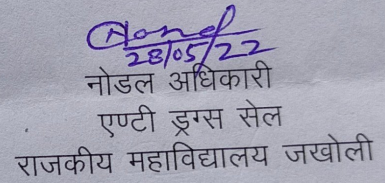 28/05/22
नोडल अधिकारी
एण्टी ड्रग्स सेल
राजकीय महाविद्यालय जखोली